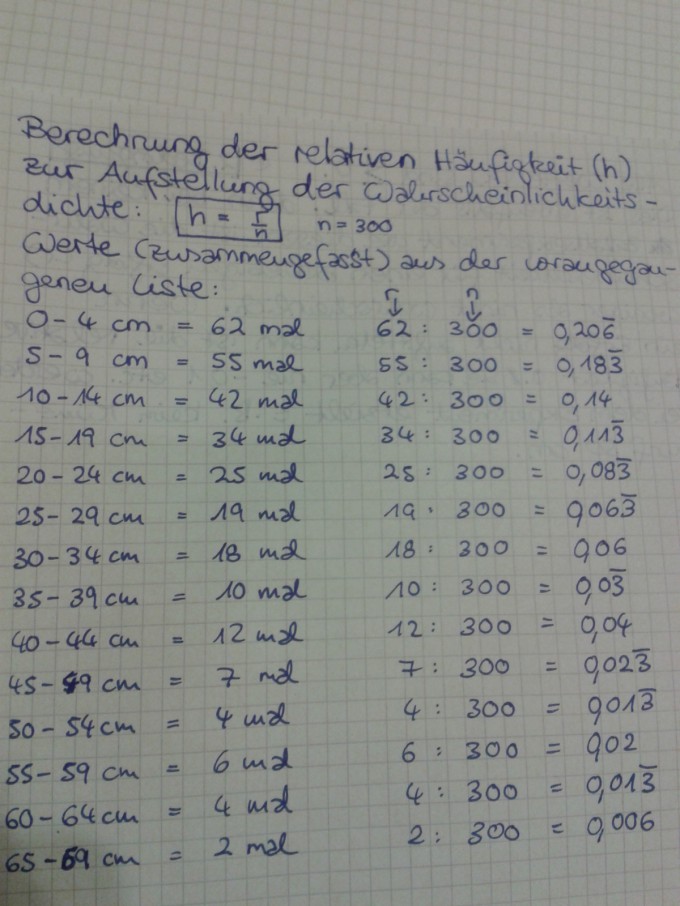 Berechnung der relativen Häufigkeit (h)
zur Aufstellung der Wahrscheinlichkeits-
dichte: h = r/n n = 300
Werte (zusammengefasst) aus der vorangegan-
genen Liste: r n
0-4 cm = 62 mal 62 : 300 = 0,206̅
5-9 cm = 55 mal 55 : 300 = 0,183̅
10-14 cm = 42 mal 42 : 300 = 0,14
15-19 cm = 34 mal 34 : 300 = 0,113̅
20-24 cm = 25 mal 25 : 300 = 0,083̅
25-29 cm = 19 mal 19 : 300 = 0,063̅
30-34 cm = 18 mal 18 : 300 = 0,06
35-39 cm = 10 mal 10 : 300 = 0,03̅
40-44 cm = 12 mal 12 : 300 = 0,04
45-49 cm = 7 mal 7 : 300 = 0,023̅
50-54 cm = 4 mal 4 : 300 = 0,013̅
55-59 cm = 6 mal 6 : 300 = 0,02
60-64 cm = 4 mal 4 : 300 = 0,013̅
65-69 cm = 2 mal 2 : 300 = 0,006